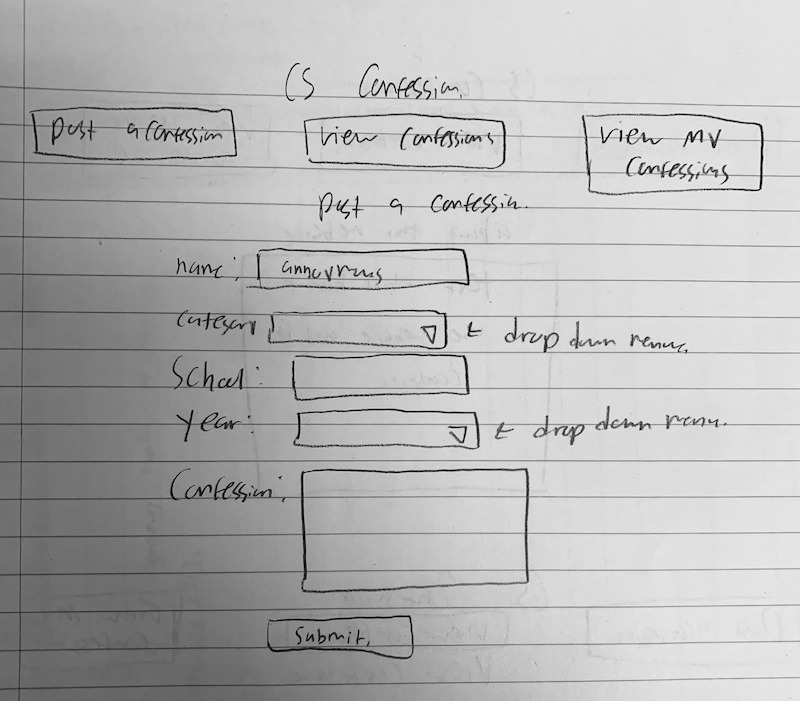 CS Confession.
post a confession
view confessions
view my
confessions
post a confession.
name: annoymous
category
← drop down menu.
School:
Year:
← drop down menu.
Confession:
Submit.